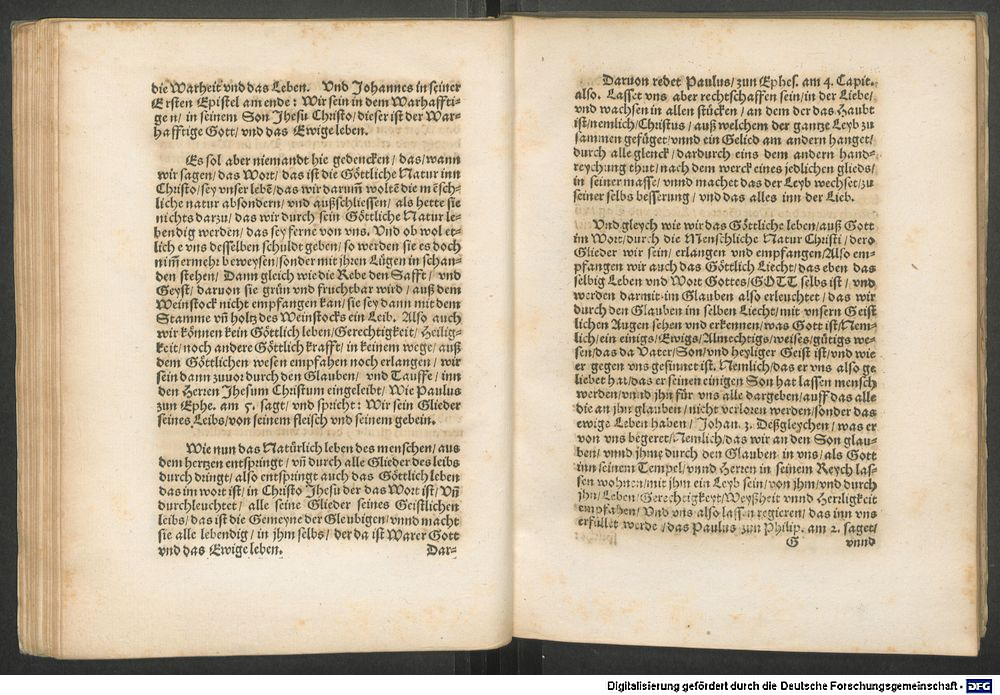 die Warheit vnd das Leben. Vnd Johannes in seiner
Ersten Epistel am ende: Wir sein in dem Warhaffti-
gen/ in seinem Son Jhesu Christo/ dieser ist der War-
hafftige Gott/ vnd das Ewige leben.
Es sol aber niemandt hie gedencken/ das/ wann
wir sagen/ das Wort/ das ist die Göttliche Natur inn
Christo/ sey vnser lebẽ/ das wir darum̃ woltẽ die mẽsch-
liche natur absondern/ vnd außschliessen/ als hette sie
nichts darzu/ das wir durch sein Göttliche Natur le-
bendig werden/ das sey ferne von vns. Vnd ob wol et-
liche vns desselben schuldt geben/ so werden sie es doch
nim̃ermehr beweysen/ sonder mit jhren Lügen in schan-
den stehen/ Dann gleich wie die Rebe den Safft/ vnd
Geyst/ daruon sie grün vnd fruchtbar wird/ auß dem
Weinstock nicht empfangen kan/ sie sey dann mit dem
Stamme vñ holtz des Weinstocks ein Leib. Also auch
wir können kein Göttlich leben/ Gerechtigkeit/ Heilig-
keit/ noch andere Göttlich krafft/ in keinem wege/ auß
dem Göttlichen wesen empfahen noch erlangen/ wir
sein dann zuuor durch den Glauben/ vnd Tauffe/ inn
den Herren Jhesum Christum eingeleibt/ Wie Paulus
zun Ephe. am 5. sagt/ vnd spricht: Wir sein Glieder
seines Leibs/ von seinem fleisch vnd seinem gebein.
Wie nun das Natürlich leben des menschen/ aus
dem hertzen entspringt/ vñ durch alle Glieder des leibs
durch dringt/ also entspringt auch das Göttlich leben
das im wort ist/ in Christo Jhesu der das Wort ist/ Vñ
durchleuchtet/ alle seine Glieder seines Geistlichen
leibs/ das ist die Gemeyne der Gleubigen/ vnnd macht
sie alle lebendig/ in jhm selbs/ der da ist Warer Gott
vnd das Ewige leben.
Dar-
Daruon redet Paulus/ zun Ephes. am 4. Capit.
also. Lasset vns aber rechtschaffen sein/ in der Liebe/
vnd wachsen in allen stücken/ an dem der das Haubt
ist/ nemlich/ Christus/ auß welchem der gantze Leyb zu
sammen gefüget/ vnnd ein Gelied am andern hanget/
durch alle glenck/ dardurch eins dem andern hand-
reychung thut/ nach dem werck eines jedlichen glieds/
in seiner masse/ vnnd machet das der Leyb wechset/ zu
seiner selbs besserung/ vnd das alles inn der Lieb.
Vnd gleych wie wir das Göttliche leben/ auß Gott
im Wort/ durch die Menschliche Natur Christi/ dero
Glieder wir sein/ erlangen vnd empfangen/ Also em-
pfangen wir auch das Göttlich Liecht/ das eben das
selbig Leben vnd Wort Gottes/ GOTT selbs ist/ vnd
werden darmit im Glauben also erleuchtet/ das wir
durch den Glauben im selben Liecht/ mit vnsern Geist
lichen Augen sehen vnd erkennen/ was Gott ist/ Nem-
lich/ ein einigs/ Ewigs/ Almechtigs/ weises/ gütigs we-
sen/ das da Vater/ Son/ vnd heyliger Geist ist/ vnd wie
er gegen vns gesinnet ist. Nemlich/ das er vns also ge
liebet hat/ das er seinen einigen Son hat lassen mensch
werden/ vnnd jhn für vns alle dargeben/ auff das alle
die an jhn glauben/ nicht verloren werden/ sonder das
ewige Leben haben/ Johan. 3. Deßgleychen/ was er
von vns begeret/ Nemlich/ das wir an den Son glau-
ben/ vnnd jhme durch den Glauben in vns/ als Gott
inn seinem Tempel/ vnnd Herren in seinem Reych las-
sen wohnen/ mit jhm ein Leyb sein/ von jhm/ vnd durch
jhn/ Leben/ Gerechtigkeyt/ Weyßheit vnnd Herligkeit
empfahen/ Vnd vns also lassen regieren/ das inn vns
erfüllet werde/ das Paulus zun Philip. am 2. saget/
G vnnd
Digitalisierung gefördert durch die Deutsche Forschungsgemeinschaft - DFG